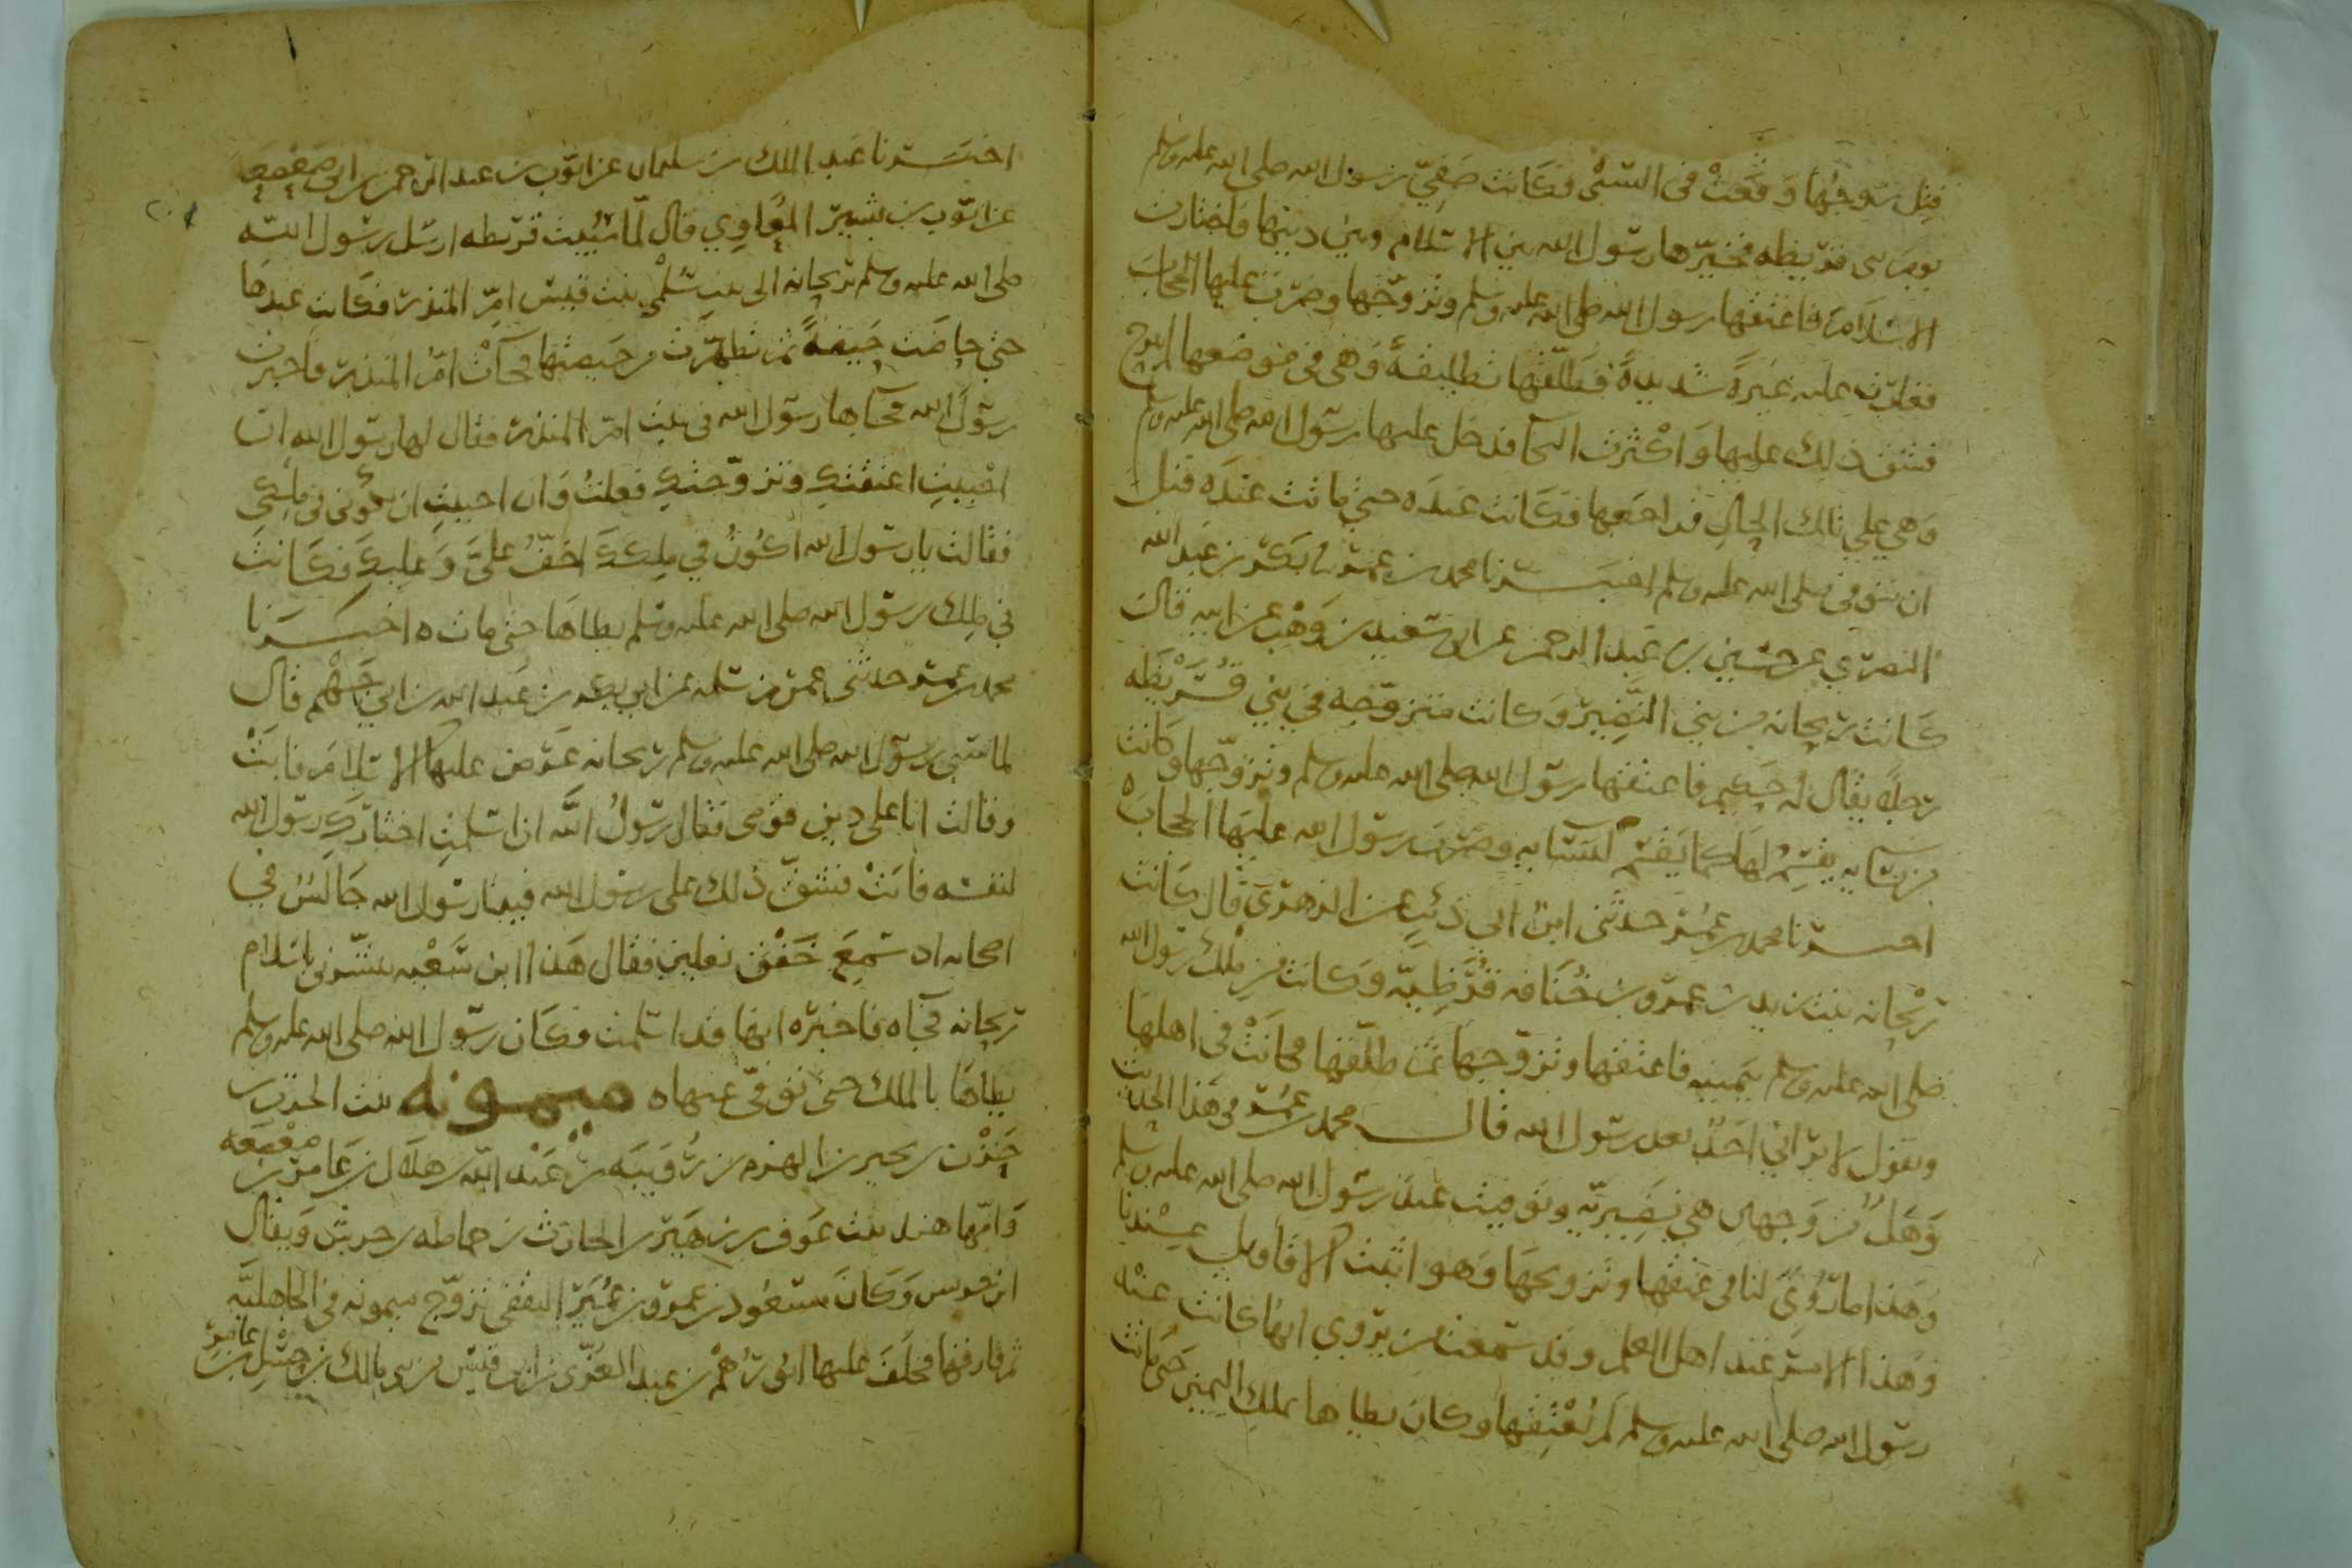 قتل زوجها وقعت في السبي فكانت صفي رسول الله صلى الله عليه وسلم
يوم بني قريظه فخيرها رسول الله بين الاسلام وبين دينها فاختارت
الاسلام فاعتقها رسول الله صلى الله عليه وسلم وتزوجها وضرب عليها الحجاب
فغارت عليه غيرة شديدة فطلقها تطليقة وهي في موضعها لم تبرح
فشق ذلك عليها واكثرت البكا فدخل عليها رسول الله صلى الله عليه وسلم
وهي على تلك الحال فراجعها فكانت عنده حتى ماتت عنده قبل
ان توفي صلى الله عليه وسلم اخبرنا محمد بن عمر بكر بن عبد الله
النصري عن حسين بن عبد الرحمن عن ابي سعيد بن وهب عن ابيه قال
كانت ريحانه من بني النضير وكانت متزوجه في بني قريظه
رجلا يقال له حكم فاعتقها رسول الله صلى الله عليه وسلم وتزوجها وكانت
من نسايه يقسم لها كما يقسم لنسايه وضرب رسول الله عليها الحجاب
اخبرنا محمد بن عمر حدثني ابن ابي ذئب عن الزهري قال كانت
ريحانه بنت زيد بن عمرو بن خنافه قرظية وكانت من ملك رسول الله
صلى الله عليه وسلم بيمينه فاعتقها وتزوجها ثم طلقها فكانت في اهلها
وتقول لا يراني احد بعد رسول الله قال محمد بن عمر في هذا الحديث
وهل من وجهين هي نضيرية وتوفيت عند رسول الله صلى الله عليه وسلم
وهذا ما روي لنا في عتقها وتزويجها وهو اثبت الاقاويل عندنا
وهذا الامر عند اهل العلم وقد سمعت من يروي انها كانت عند
رسول الله صلى الله عليه وسلم لم يعتقها وكان يطاها بملك اليمين حتى ماتت
اخبرنا عبد الملك بن سليمان عن ايوب بن عبد الرحمن بن ابي صعصعه
عن ايوب بن بشير المعاوي قال لما سبيت قريظه ارسل رسول الله
صلى الله عليه وسلم بريحانه الى بيت سلمى بنت قيس ام المنذر فكانت عندها
حتى حاضت حيضة ثم تطهرت من حيضتها فجآت ام المنذر فاخبرت
رسول الله فجآها رسول الله في بيت ام المنذر فقال لها رسول الله ان
احببت اعتقتك وتزوجتك فعلت وان احببت ان تكوني في ملكي
فقالت يا رسول الله اكون في ملكك اخف علي وعليك فكانت
في ملك رسول الله صلى الله عليه وسلم يطاها حتى ماتت ه اخبرنا
محمد بن عمر حدثني عمر بن سلمه عن ابي بكر بن عبد الله بن ابي جهم قال
لما سبى رسول الله صلى الله عليه وسلم ريحانه عرض عليها الاسلام فابت
وقالت انا على دين قومي فقال رسول الله ان اسلمت اختارك رسول الله
لنفسه فابت فشق ذلك على رسول الله فبينا رسول الله جالس في
اصحابه اذ سمع خفق نعلين فقال هذا ابن سعيه يبشرني باسلام
ريحانه فجاه فاخبره انها قد اسلمت فكان رسول الله صلى الله عليه وسلم
يطاها بالملك حتى توفي عنها ه ميمونه بنت الحرث بن
حزن بن بجير بن الهزم بن رويبه بن عبد الله بن هلال بن عامر بن صعصعه
وامها هند بنت عوف بن زهير بن الحارث بن حماطه بن جرش ويقال
ابن جرس وكان مسعود بن عمرو بن عمير الثقفي تزوج ميمونه في الجاهلية
ثم فارقها فخلف عليها ابو رهم بن عبد العزى بن ابي قيس من بني مالك بن حسل بن عامر